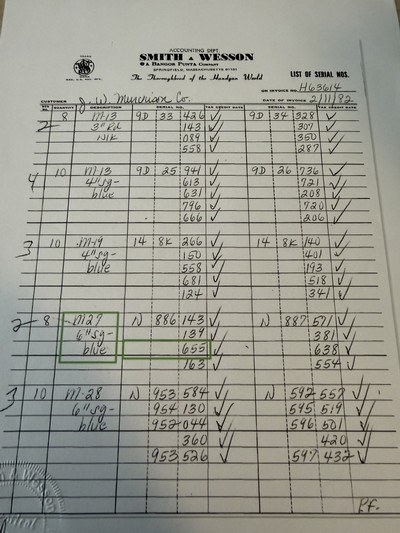 ACCOUNTING DEPT.
SMITH & WESSON
A BANGOR PUNTA COMPANY
SPRINGFIELD, MASSACHUSETTS 01101
The Thoroughbred of the Handgun World
LIST OF SERIAL NOS.
ON INVOICE NO. H63614
CUSTOMER J. W. Co. DATE OF INVOICE 2/11/82
QUANTITY DESCRIPTION SERIAL NO. TAX CREDIT DATE SERIAL NO. TAX CREDIT DATE
2 8 M-13 9D 33 426 9D 34 328
3" Rd 143 307
Nik 089 350
558 287
4 10 M-13 9D 25 941 9D 26 736
4" sq- 613 721
blue 631 208
796 720
666 206
3 10 M-19 14 8K 266 14 8K 140
4" sq- 150 401
blue 558 193
681 518
124 341
2- 8 M27 N 886 143 N 887 571
6" sq- 139 381
blue 655 638
163 554
3 10 M-28 N 953 584 N 592 557
6" sq- 954 130 595 519
blue 952 044 596 501
360 420
953 526 597 432
P.F.